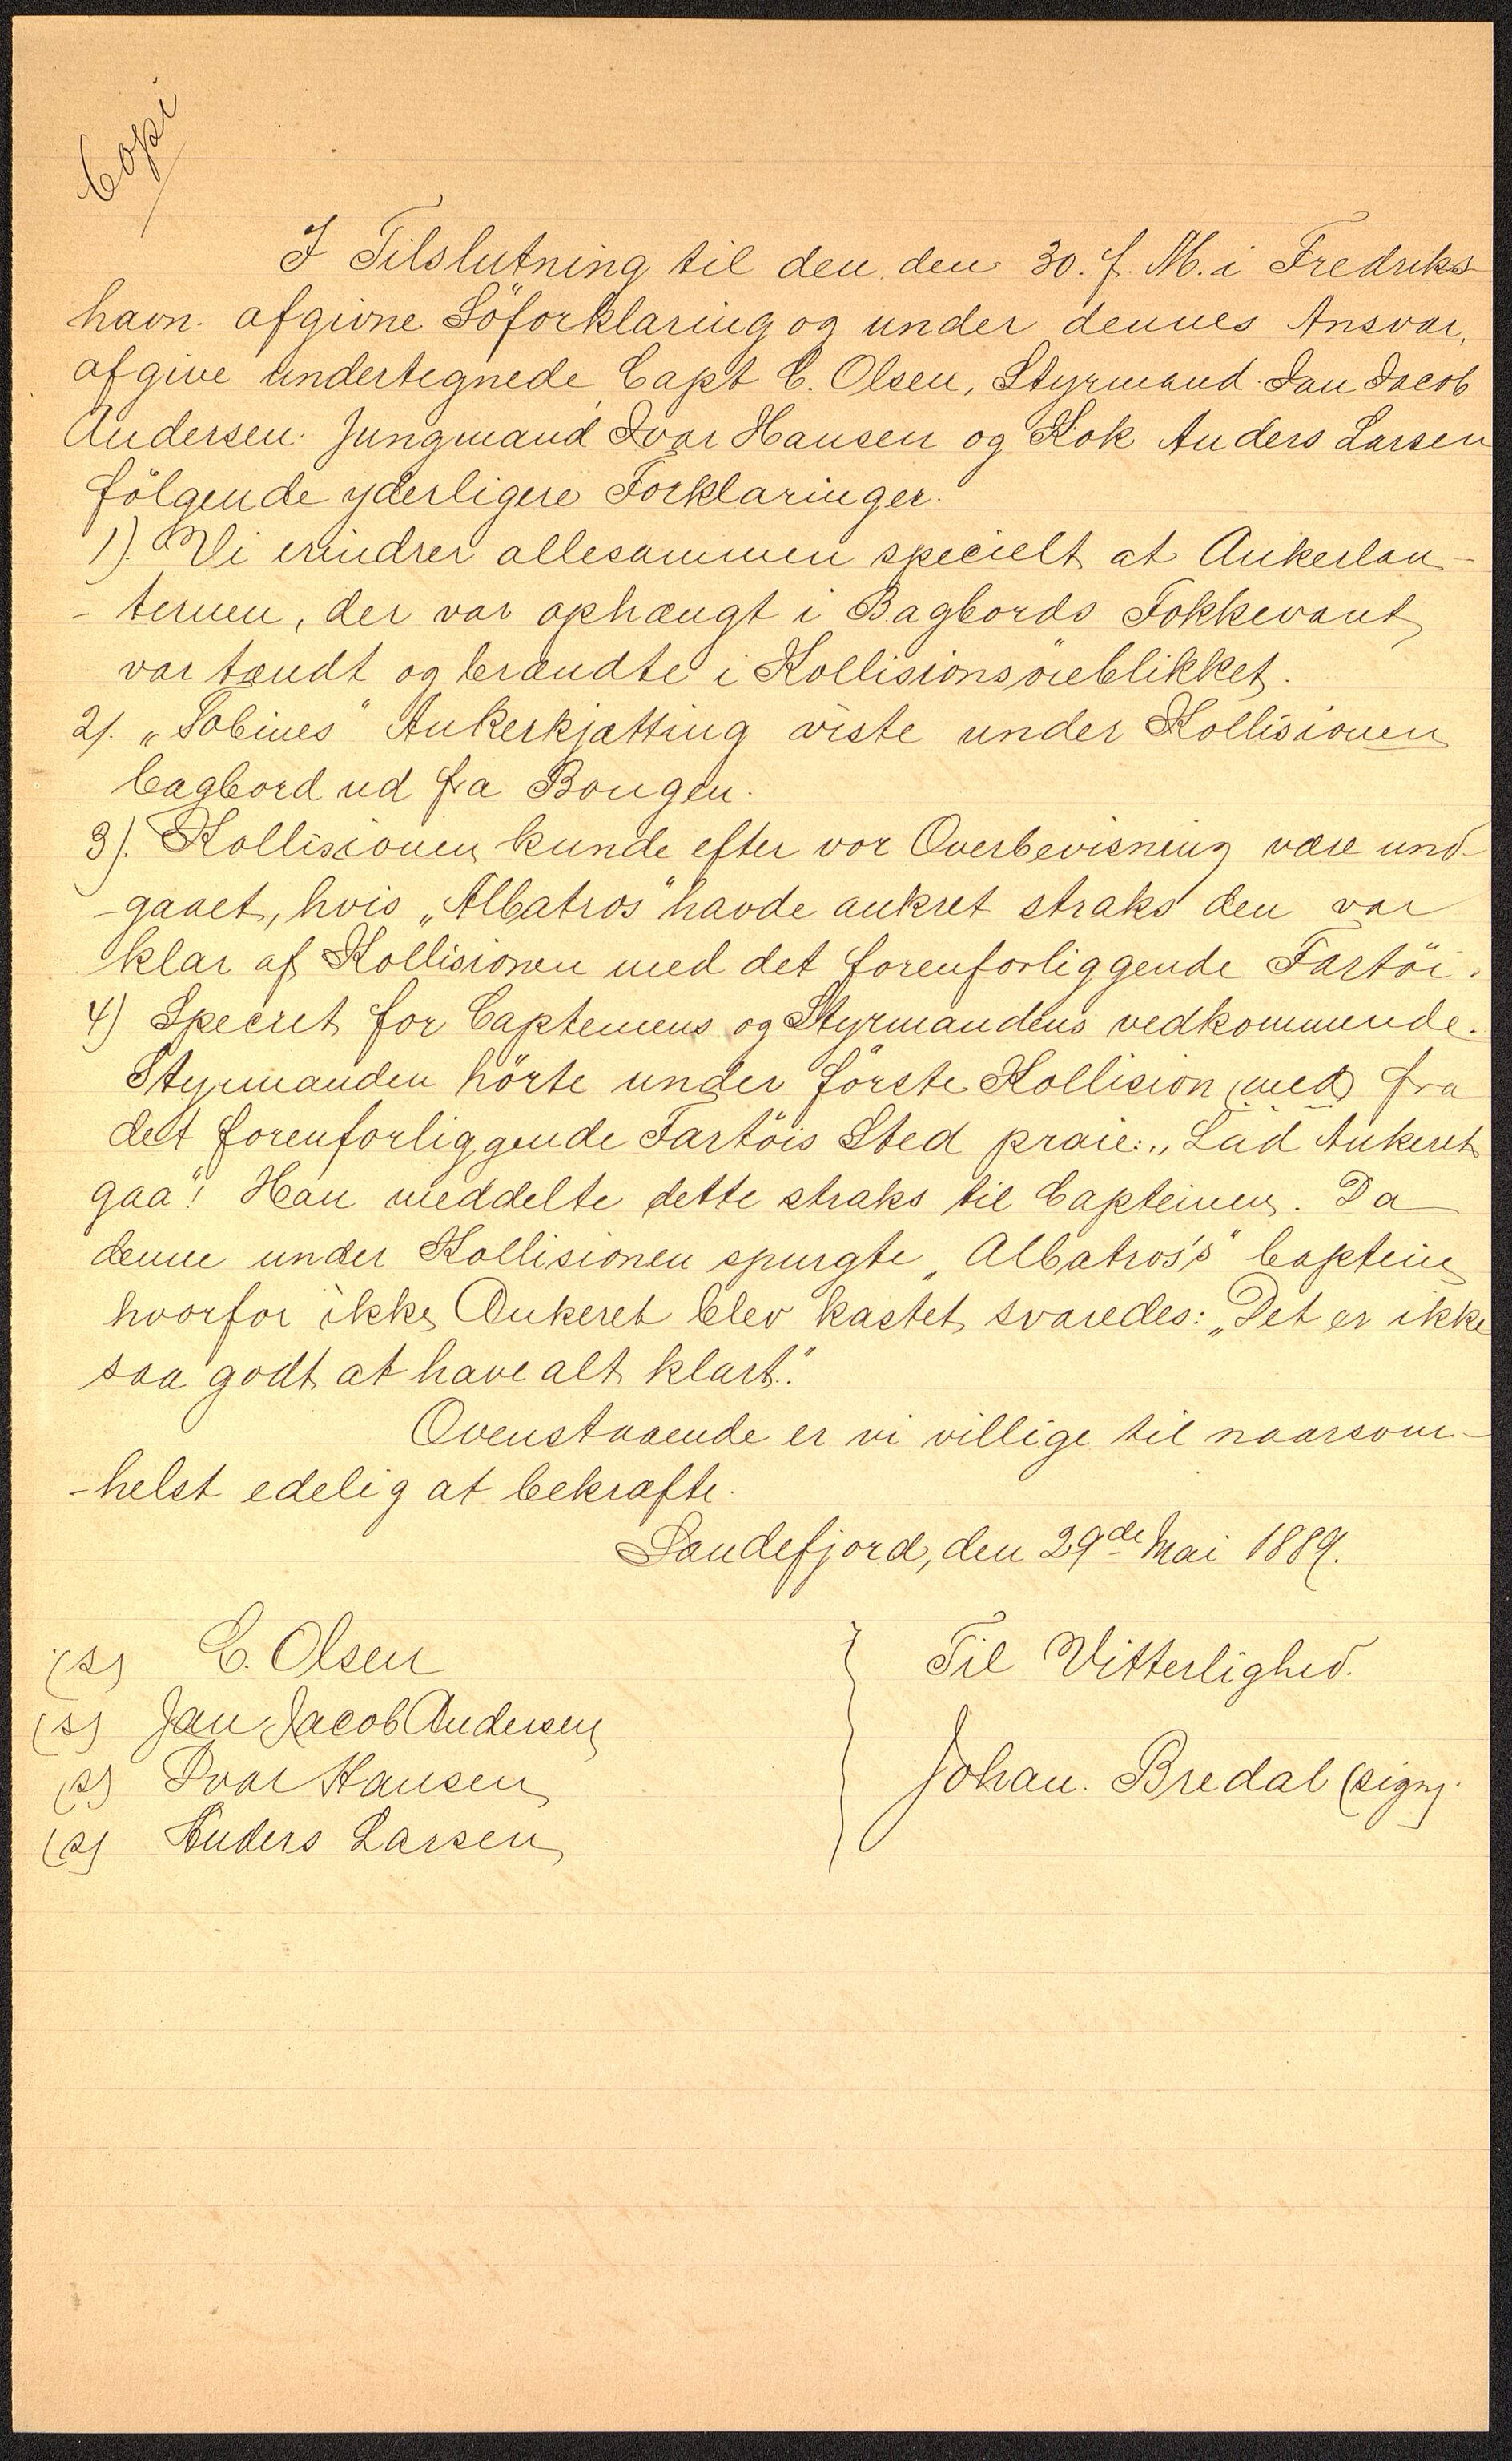 Copi
I Tilslutning til den den 30. f. M. i Fredriks-
havn. afgivne Söforklaring og under dennes Ansvar,
afgive undertegnede Capt C. Olsen, Styrmand. Jan Jacob
Andersen. Jungmand Ivar Hansen og Kok Anders Larsen
fölgende yderligere Forklaringer.
1). Vi erindrer allesammen specielt at Ankerlan-
- ternen, der var ophængt i Bagbords Fokkevant
var tændt og brændte i Kollisionsöieblikket.
2). „Sobines" Ankerkjætting viste under Kollisionen
bagbord ud fra Bougen.
3). Kollisionen kunde efter vor Overbevisning være und-
-gaaet, hvis „Albatros" havde ankret straks den var
klar af Kollisionen med det forenforliggende Fartöi.
4) Specielt for Capteinens og Styrmandens vedkommende.
Styrmanden hörte under förste Kollision (med) fra
det forenforliggende Fartöis Sted praie: „Lad Ankeret
gaa"! Han meddelte dette straks til Capteinen. Da
denne under Kollisionen spurgte „Albatros's" Captein
hvorfor ikke Ankeret blev kastet, svaredes: „Det er ikke
saa godt at have alt klart."
Ovenstaaende er vi villige til naarsom-
-helst edelig at bekræfte.
Sandefjord, den 29de Mai 1889.
(s) C. Olsen
(s) Jan Jacob Andersen
(s) Ivar Hansen
(s) Anders Larsen
Til Vitterlighed.
Johan. Bredal (sign).